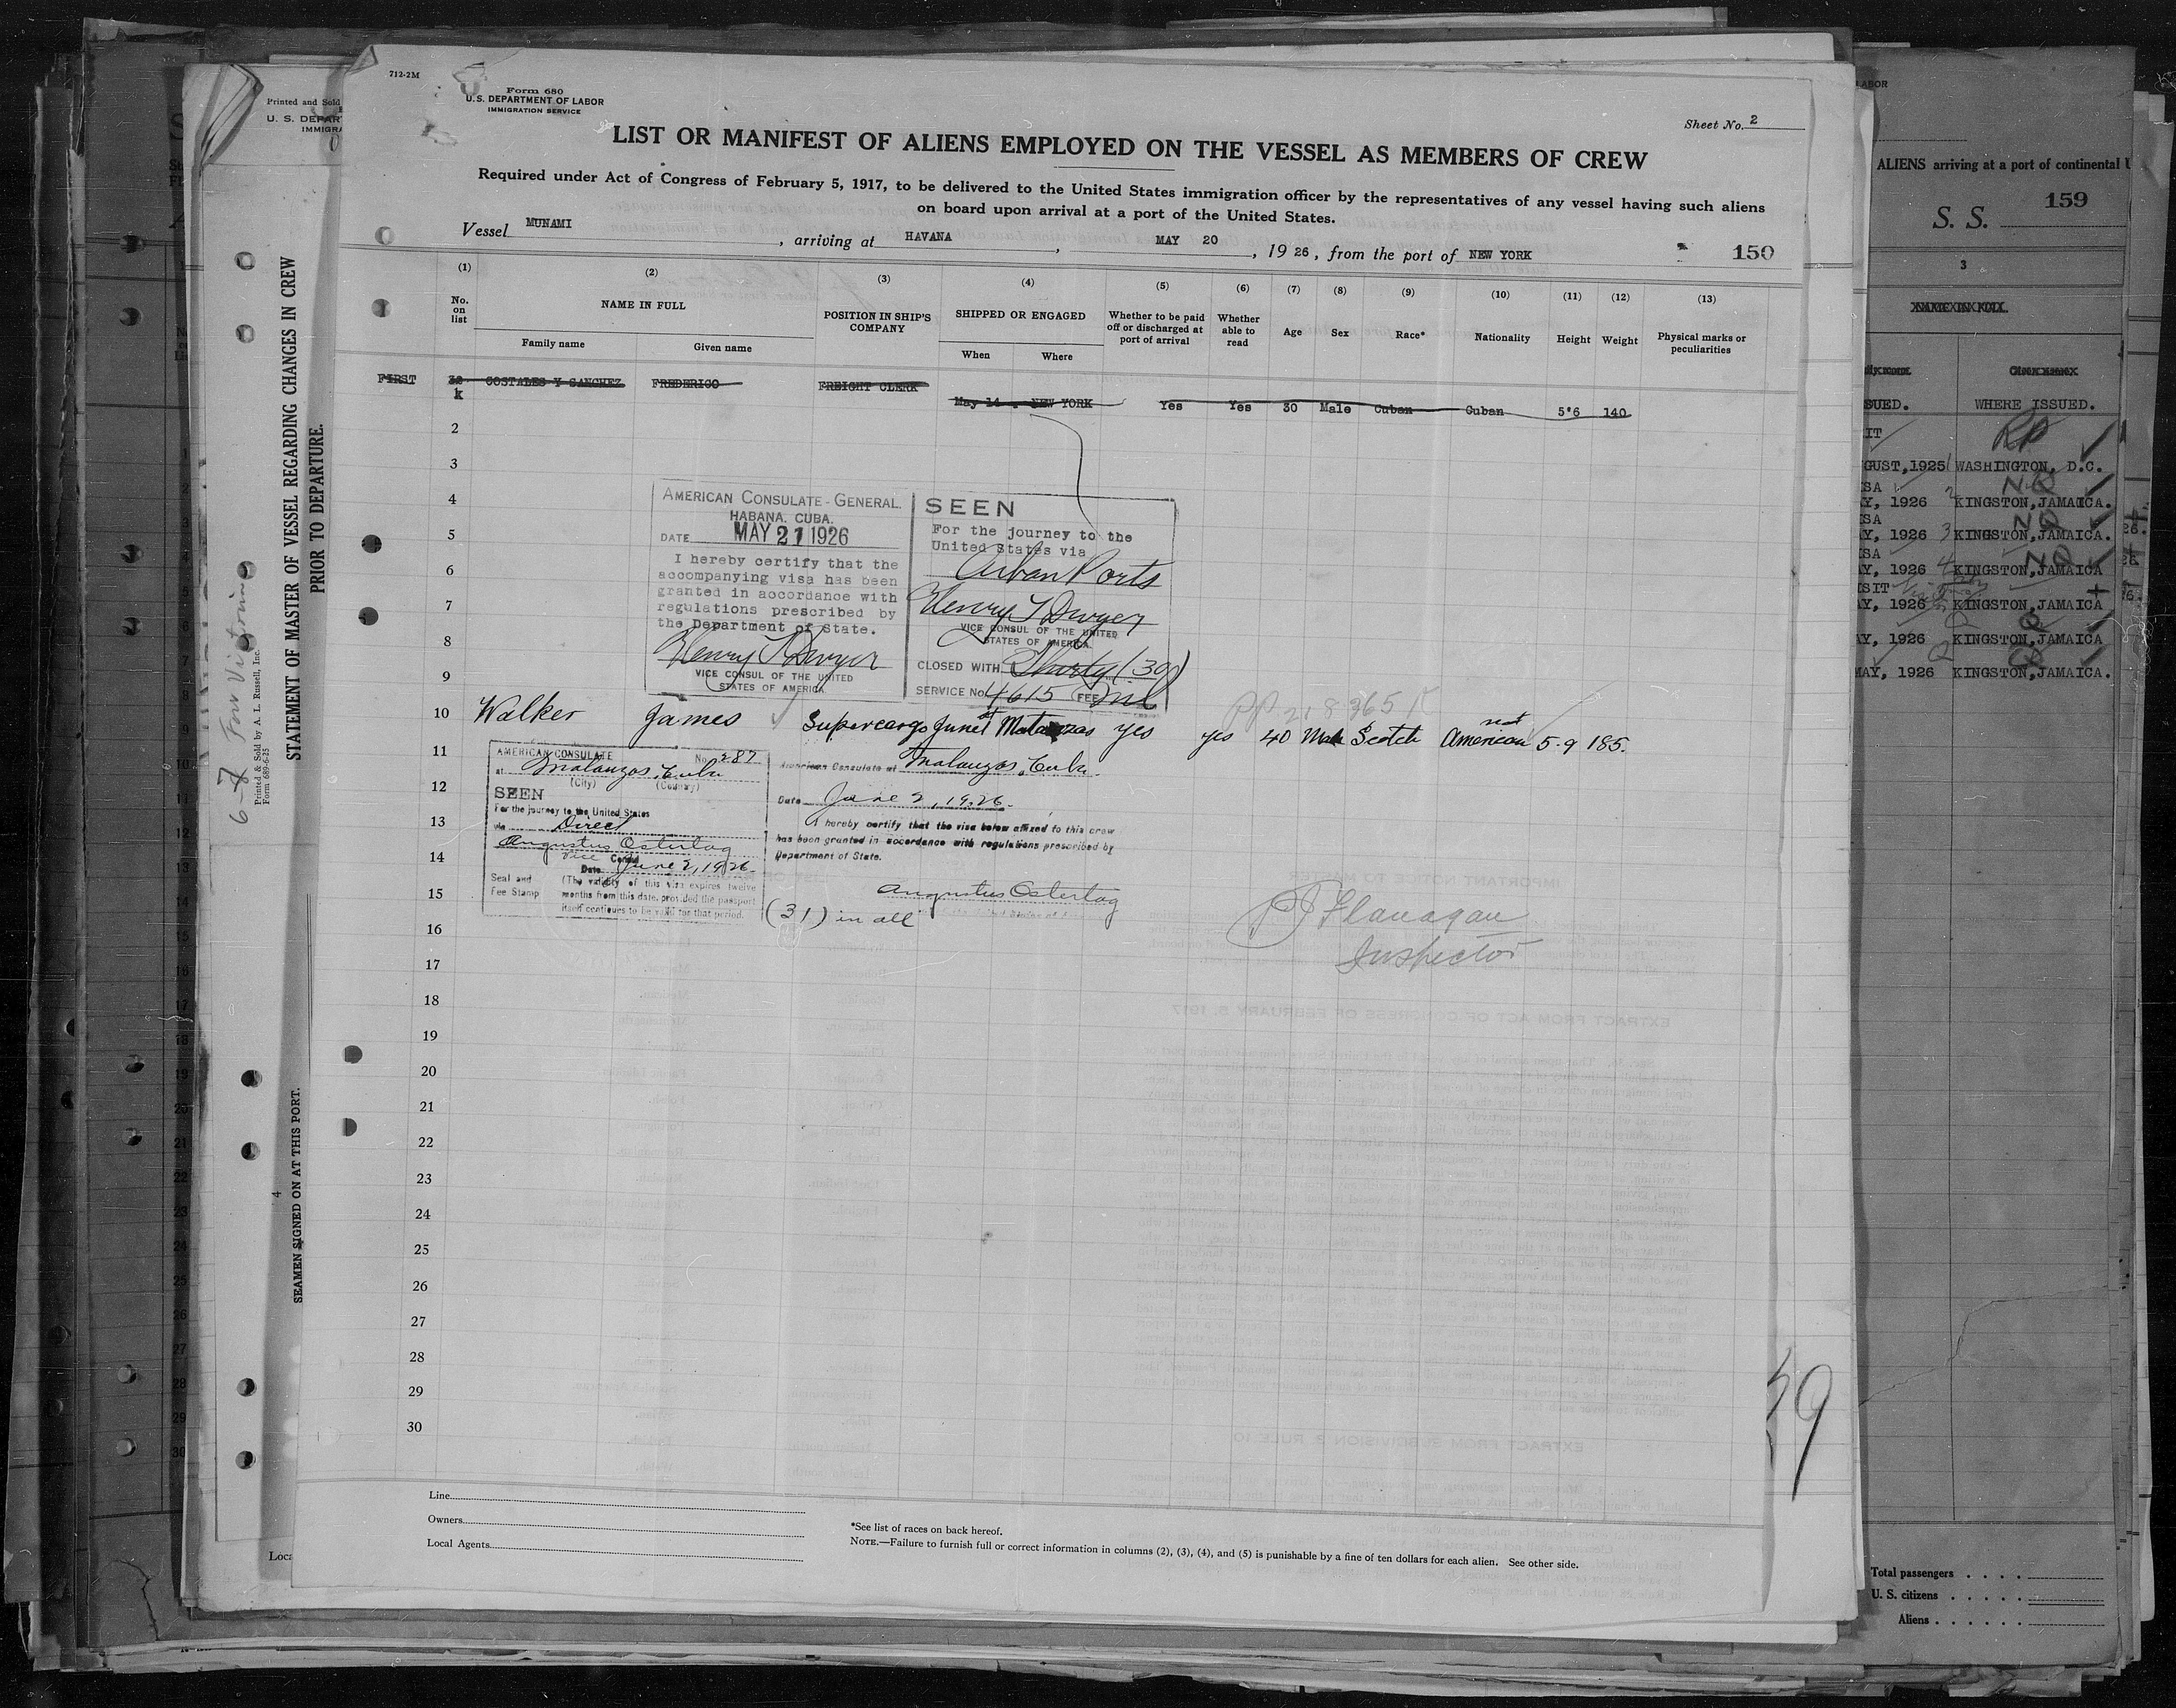 712-2M
Form 680
U.S. DEPARTMENT OF LABOR
IMMIGRATION SERVICE
Sheet No. 2
LIST OR MANIFEST OF ALIENS EMPLOYED ON THE VESSEL AS MEMBERS OF CREW
Required under Act of Congress of February 5, 1917, to be delivered to the United States immigration officer by the representatives of any vessel having such aliens
on board upon arrival at a port of the United States.
Vessel MUNAMI, arriving at HAVANA, MAY 20, 1926, from the port of NEW YORK 150
(1) (2) (3) (4) (5) (6) (7) (8) (9) (10) (11) (12) (13)
No. on list
NAME IN FULL
Family name
Given name
POSITION IN SHIP'S COMPANY
SHIPPED OR ENGAGED
When
Where
Whether to be paid off or discharged at port of arrival
Whether able to read
Age
Sex
Race*
Nationality
Height
Weight
Physical marks or peculiarities
FIRST 32 COSTALES Y SANCHEZ FREDERICO FREIGHT CLERK
k May 14 . NEW YORK Yes Yes 30 Male Cuban Cuban 5'6 140
2
3
4
5
6
7
8
9
AMERICAN CONSULATE-GENERAL.
HABANA. CUBA.
DATE MAY 21 1926
I hereby certify that the
accompanying visa has been
granted in accordance with
regulations prescribed by
the Department of State.
Henry T Dwyer
VICE CONSUL OF THE UNITED
STATES OF AMERICA
SEEN
For the journey to the
United States via
Cuban Ports
Henry T Dwyer
VICE CONSUL OF THE UNITED
STATES OF AMERICA
CLOSED WITH Thirty (30)
SERVICE No 4615 FEE nil
PP 218365
10 Walker James Supercargo June 1st Matanzas yes yes 40 Male Scotch American 5-9 185.
11
12
13
14
15
16
17
18
19
20
21
22
23
24
25
26
27
28
29
30
AMERICAN CONSULATE No. 287
at Matanzas, Cuba
(City) (Country)
SEEN
For the journey to the United States
via Direct
Augustus Ostertag
Vice Consul
Date June 2, 1926.
Seal and
Fee Stamp
(The validity of this visa expires twelve
months from this date, provided the passport
itself continues to be valid for that period.
American Consulate at Matanzas, Cuba.
Date June 2, 1926.
I hereby certify that the visa below affixed to this crew
has been granted in accordance with regulations prescribed by
Department of State.
Augustus Ostertag
(31) in all
PJ Flanagan
Inspector
Line
Owners
Local Agents
*See list of races on back hereof.
NOTE.—Failure to furnish full or correct information in columns (2), (3), (4), and (5) is punishable by a fine of ten dollars for each alien. See other side.
Printed and Sold
U. S. DEPART
IMMIGRA
STATEMENT OF MASTER OF VESSEL REGARDING CHANGES IN CREW
PRIOR TO DEPARTURE.
Printed & Sold by A. I. Russell, Inc.
Form 689-6-25
SEAMEN SIGNED ON AT THIS PORT.
4
Loca
ABOR
ALIENS arriving at a port of continental U
S. S. 159
3
SUED. WHERE ISSUED.
GUST, 1925 WASHINGTON, D.C.
Y, 1926 KINGSTON, JAMAICA.
Y, 1926 KINGSTON, JAMAICA.
Y, 1926 KINGSTON, JAMAICA
Y, 1926 KINGSTON, JAMAICA
AY, 1926 KINGSTON, JAMAICA
MAY, 1926 KINGSTON, JAMAICA.
Total passengers
U. S. citizens
Aliens